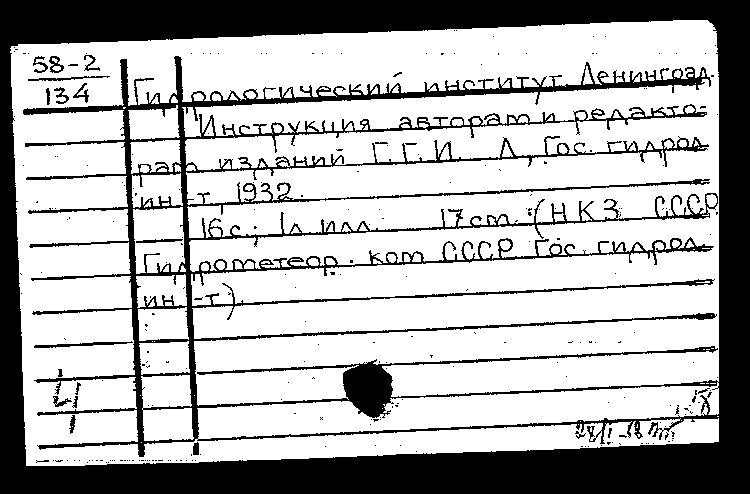 58-2
134
Гидрологический институт. Ленинград.
Инструкция авторам и редакто-
рам изданий Г.Г.И. Л., Гос. гидрол
ин-т, 1932.
16с.; 1л илл. 17см. (НКЗ СССР
Гидрометеор. ком СССР Гос. гидрол.
ин.-т)
Ч